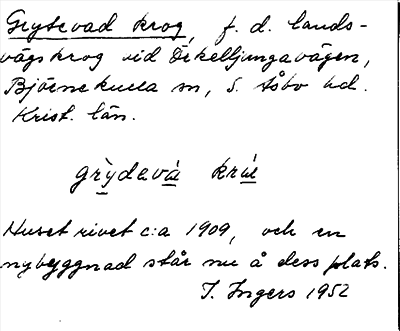 Grytevad krog, f. d. lands-
vägskrog vid Örkelljungavägen,
Björnekulla sn, S. Åsbo hd.
Krist. län.
grỳdevá krú
Huset rivet c:a 1909, och en
nybyggnad står nu å dess plats.
I. Ingers 1952